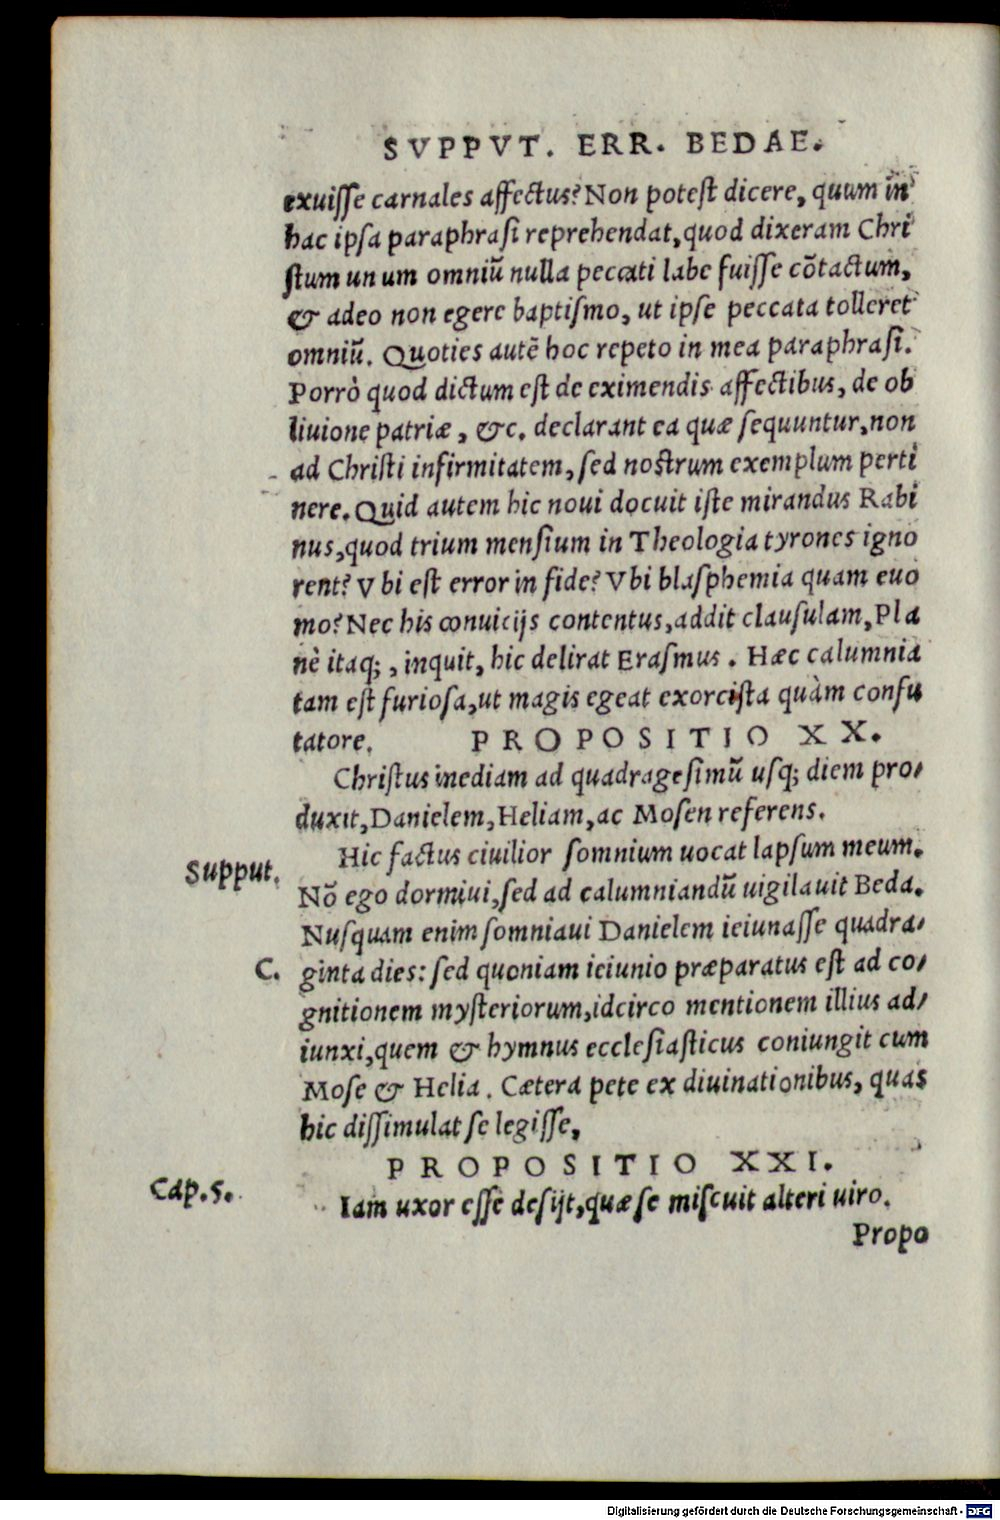 SVPPVT. ERR. BEDAE.
exuiſſe carnales affectus? Non poteſt dicere, quum in
hac ipſa paraphraſi reprehendat, quod dixeram Chri
ſtum unum omniũ nulla peccati labe fuiſſe cõtactum,
& adeo non egere baptiſmo, ut ipſe peccata tolleret
omniũ. Quoties autẽ hoc repeto in mea paraphraſi.
Porrò quod dictum eſt de eximendis affectibus, de ob
liuione patriæ, &c. declarant ea quæ ſequuntur, non
ad Chriſti infirmitatem, ſed noſtrum exemplum perti
nere. Quid autem hic noui docuit iſte mirandus Rabi
nus, quod trium menſium in Theologia tyrones igno
rent? Vbi eſt error in fide? Vbi blaſphemia quam euo
mo? Nec his conuicijs contentus, addit clauſulam, Pla
nè itaq;, inquit, hic delirat Eraſmus. Hæc calumnia
tam eſt furioſa, ut magis egeat exorciſta quàm confu
tatore. PROPOSITIO XX.
Chriſtus inediam ad quadrageſimũ uſq; diem pro-
duxit, Danielem, Heliam, ac Moſen referens.
Supput. Hic factus ciuilior ſomnium uocat lapſum meum.
Nõ ego dormiui, ſed ad calumniandũ uigilauit Beda.
Nuſquam enim ſomniaui Danielem ieiunaſſe quadra-
C. ginta dies: ſed quoniam ieiunio præparatus eſt ad co-
gnitionem myſteriorum, idcirco mentionem illius ad-
iunxi, quem & hymnus eccleſiaſticus coniungit cum
Moſe & Helia. Cætera pete ex diuinationibus, quas
hic diſſimulat ſe legiſſe,
PROPOSITIO XXI.
Cap.5. Iam uxor eſſe deſijt, quæ ſe miſcuit alteri uiro.
Propo
Digitalisierung gefördert durch die Deutsche Forschungsgemeinschaft - DFG